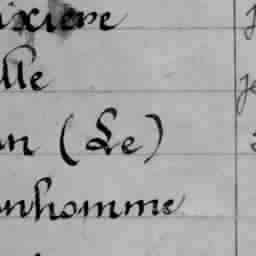 ixière
lle
an (Le)
onhomme